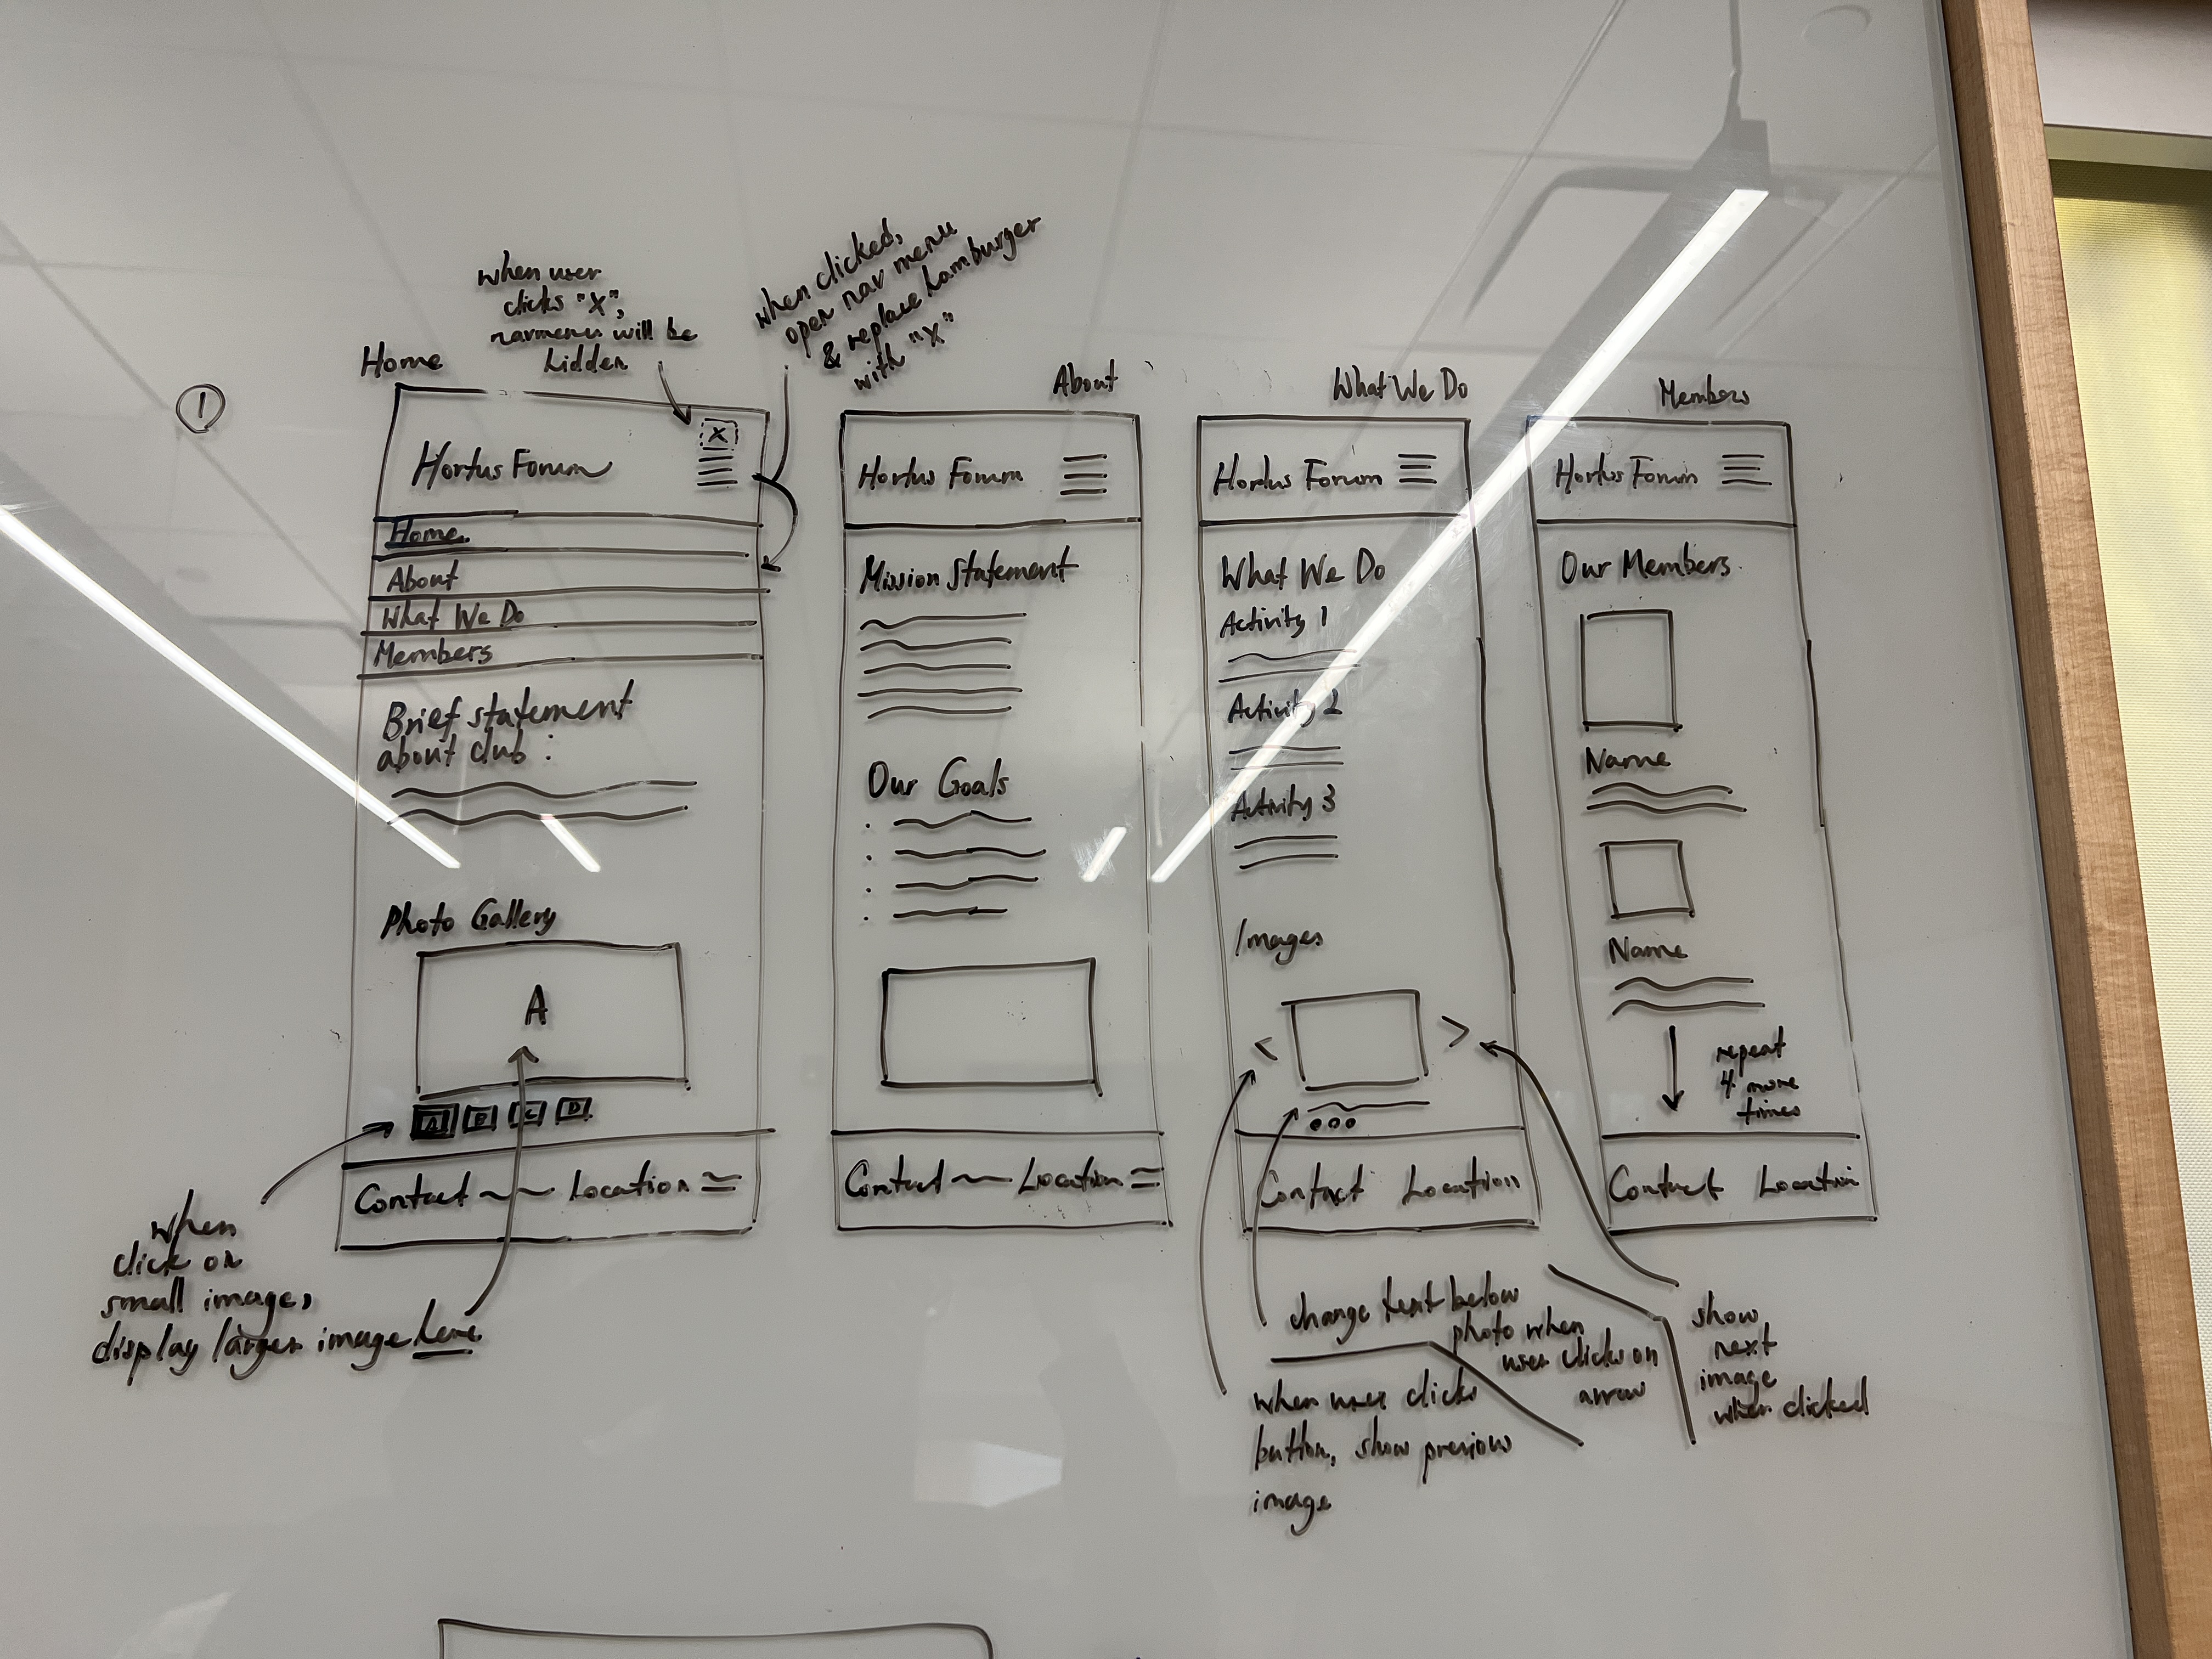 1
when user
clicks "X",
navmenu will be
hidden
when clicked,
open nav menu
& replace hamburger
with "X"
Home
X
Hortus Forum
Home
About
What We Do
Members
Brief statement
about club :
Photo Gallery
A
A B C D
Contact Location
when
click on
small image,
display larger image here
About
Hortus Forum
Mission Statement
Our Goals
Contact Location
What We Do
Hortus Forum
What We Do
Activity 1
Activity 2
Activity 3
Images
< >
Contact Location
change text below
photo when
user clicks on
arrow
when user clicks
button, show previous
image
show
next
image
when clicked
Members
Hortus Forum
Our Members
Name
Name
repeat
4 more
times
Contact Location